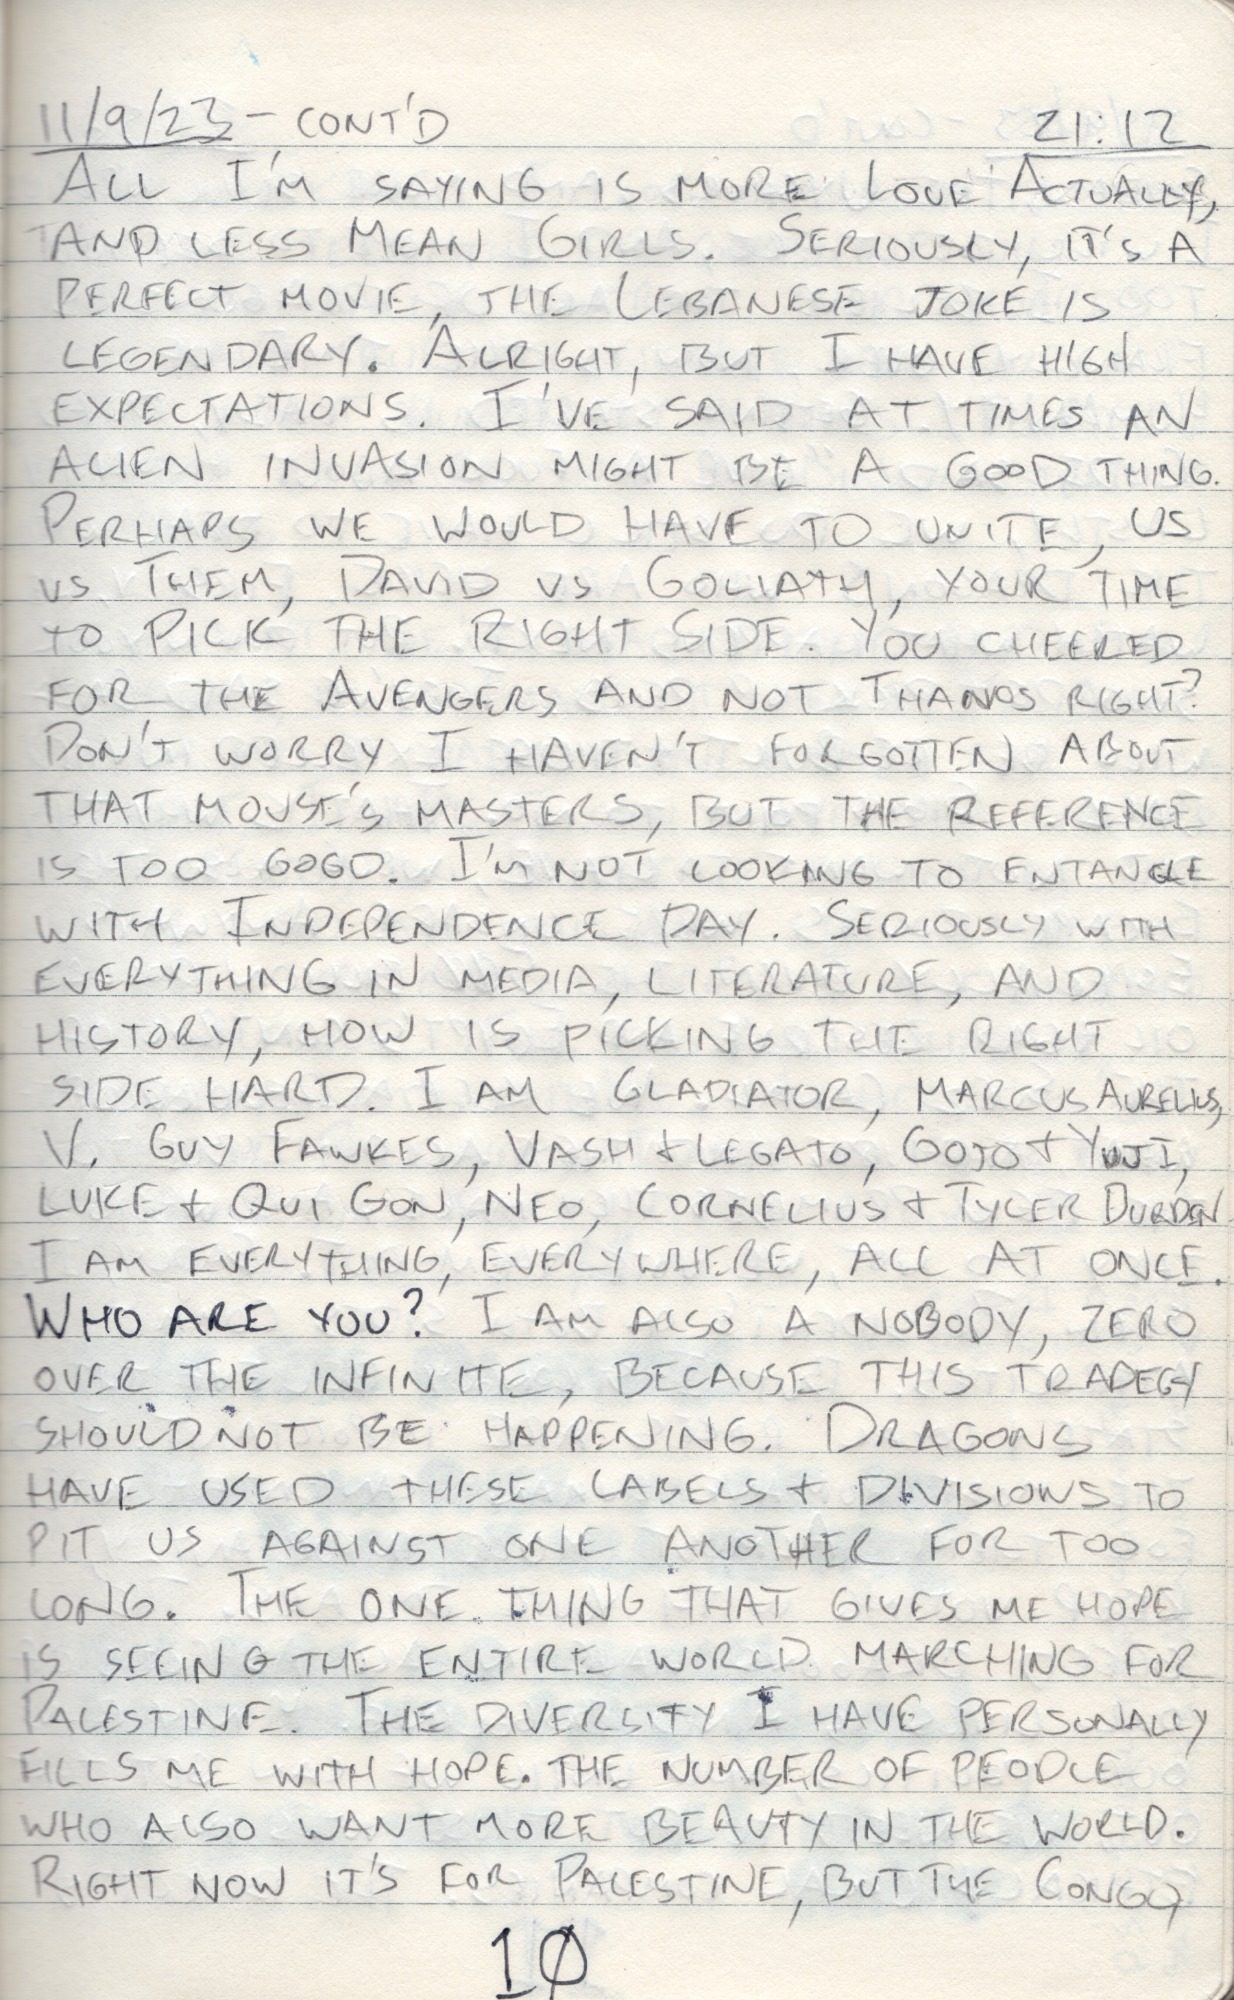 11/9/23 - CONT'D 21:12
ALL I'M SAYING IS MORE LOVE ACTUALLY,
AND LESS MEAN GIRLS. SERIOUSLY, IT'S A
PERFECT MOVIE, THE LEBANESE JOKE IS
LEGENDARY. ALRIGHT, BUT I HAVE HIGH
EXPECTATIONS. I'VE SAID AT TIMES AN
ALIEN INVASION MIGHT BE A GOOD THING.
PERHAPS WE WOULD HAVE TO UNITE, US
VS THEM, DAVID VS GOLIATH, YOUR TIME
TO PICK THE RIGHT SIDE. YOU CHEERED
FOR THE AVENGERS AND NOT THANOS RIGHT?
DON'T WORRY I HAVEN'T FORGOTTEN ABOUT
THAT MOUSE'S MASTERS, BUT THE REFERENCE
IS TOO GOOD. I'M NOT LOOKING TO ENTANGLE
WITH INDEPENDENCE DAY. SERIOUSLY WITH
EVERYTHING IN MEDIA, LITERATURE, AND
HISTORY, HOW IS PICKING THE RIGHT
SIDE HARD. I AM GLADIATOR, MARCUS AURELIUS,
V, GUY FAWKES, VASH + LEGATO, GOJO + YUJI,
LUKE + QUI GON, NEO, CORNELIUS + TYLER DURDEN
I AM EVERYTHING, EVERYWHERE, ALL AT ONCE.
WHO ARE YOU? I AM ALSO A NOBODY, ZERO
OVER THE INFINITE, BECAUSE THIS TRADEGY
SHOULD NOT BE HAPPENING. DRAGONS
HAVE USED THESE LABELS + DIVISIONS TO
PIT US AGAINST ONE ANOTHER FOR TOO
LONG. THE ONE THING THAT GIVES ME HOPE
IS SEEING THE ENTIRE WORLD MARCHING FOR
PALESTINE. THE DIVERSITY I HAVE PERSONALLY
FILLS ME WITH HOPE. THE NUMBER OF PEOPLE
WHO ALSO WANT MORE BEAUTY IN THE WORLD.
RIGHT NOW IT'S FOR PALESTINE, BUT THE CONGO,
10